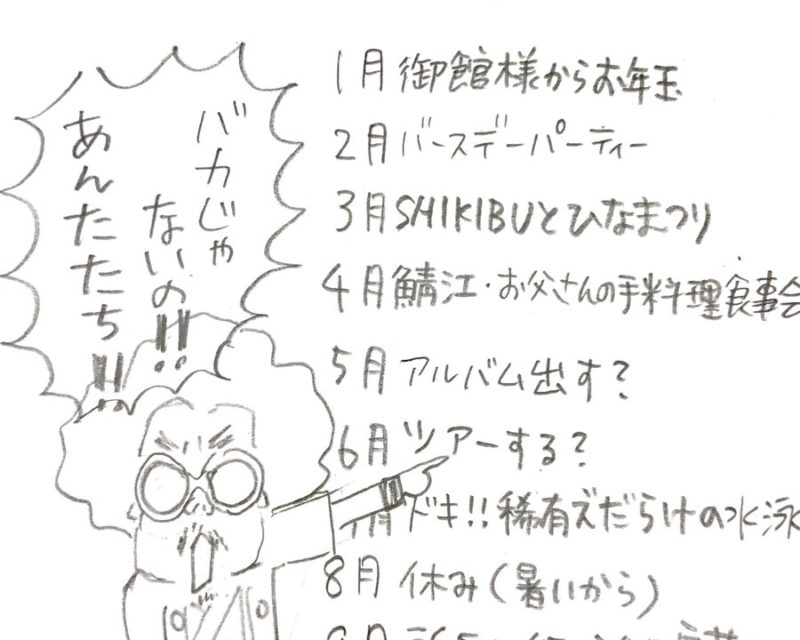 バカじゃ
ないの!!
あんたたち!!
1月 御館様からお年玉
2月 バースデーパーティー
3月 SHIKIBUとひなまつり
4月 鯖江・お父さんの手料理食事会
5月 アルバム出す?
6月 ツアーする?
ドキ!! 稀有えだらけの水泳
8月 休み(暑いから)
9月